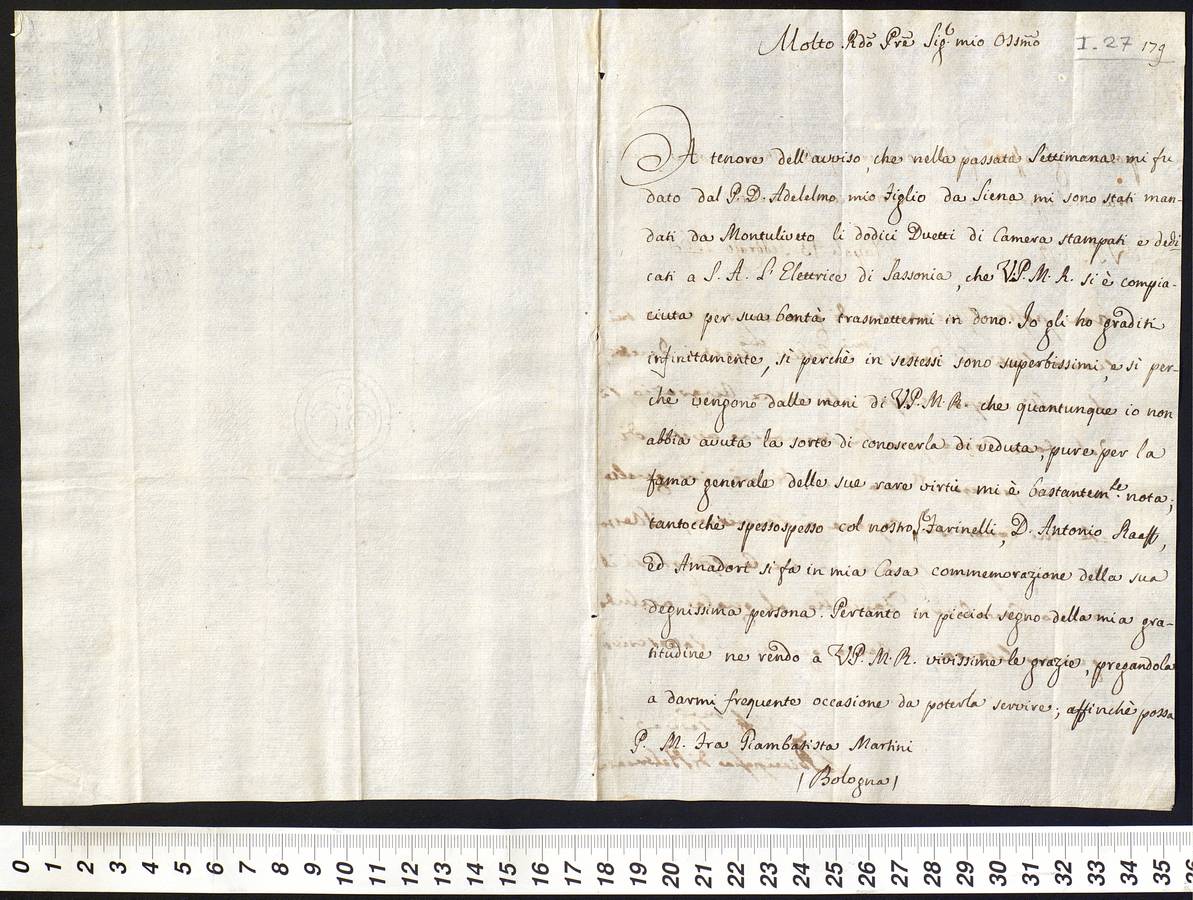 Molto Rdō Prē Sigr mio Ossmō
I. 27 179
A tenore dell'avviso, che nella passata Settimana mi fu
dato dal P. D. Adelelmo mio Figlio da Siena mi sono stati man-
dati da Montuliveto li dodici Duetti di Camera stampati e dedi
cati a S. A. L'Elettrice di Sassonia, che V.P.M.R. si è compia-
ciuta per sua bontà trasmettermi in dono. Io gli ho graditi
infinitamente, sì perchè in sestessi sono superbissimi, e sì per-
chè vengono dalle mani di V.P.M.R. che quantunque io non
abbia avuta la sorte di conoscerla di veduta, pure per la
fama generale delle sue rare virtù mi è bastantemte. nota;
tantocchè spessospesso col nostro Sr. Farinelli, D. Antonio Raaff,
ed Amadori si fa in mia Casa commemorazione della sua
degnissima persona. Pertanto in picciol segno della mia gra-
titudine ne rendo a V.P.M.R. vivissime le grazie, pregandola
a darmi frequente occasione da poterla servire; affinchè possa
P. M. Fra Giambatista Martini
(Bologna)
0 1 2 3 4 5 6 7 8 9 10 11 12 13 14 15 16 17 18 19 20 21 22 23 24 25 26 27 28 29 30 31 32 33 34 35 36